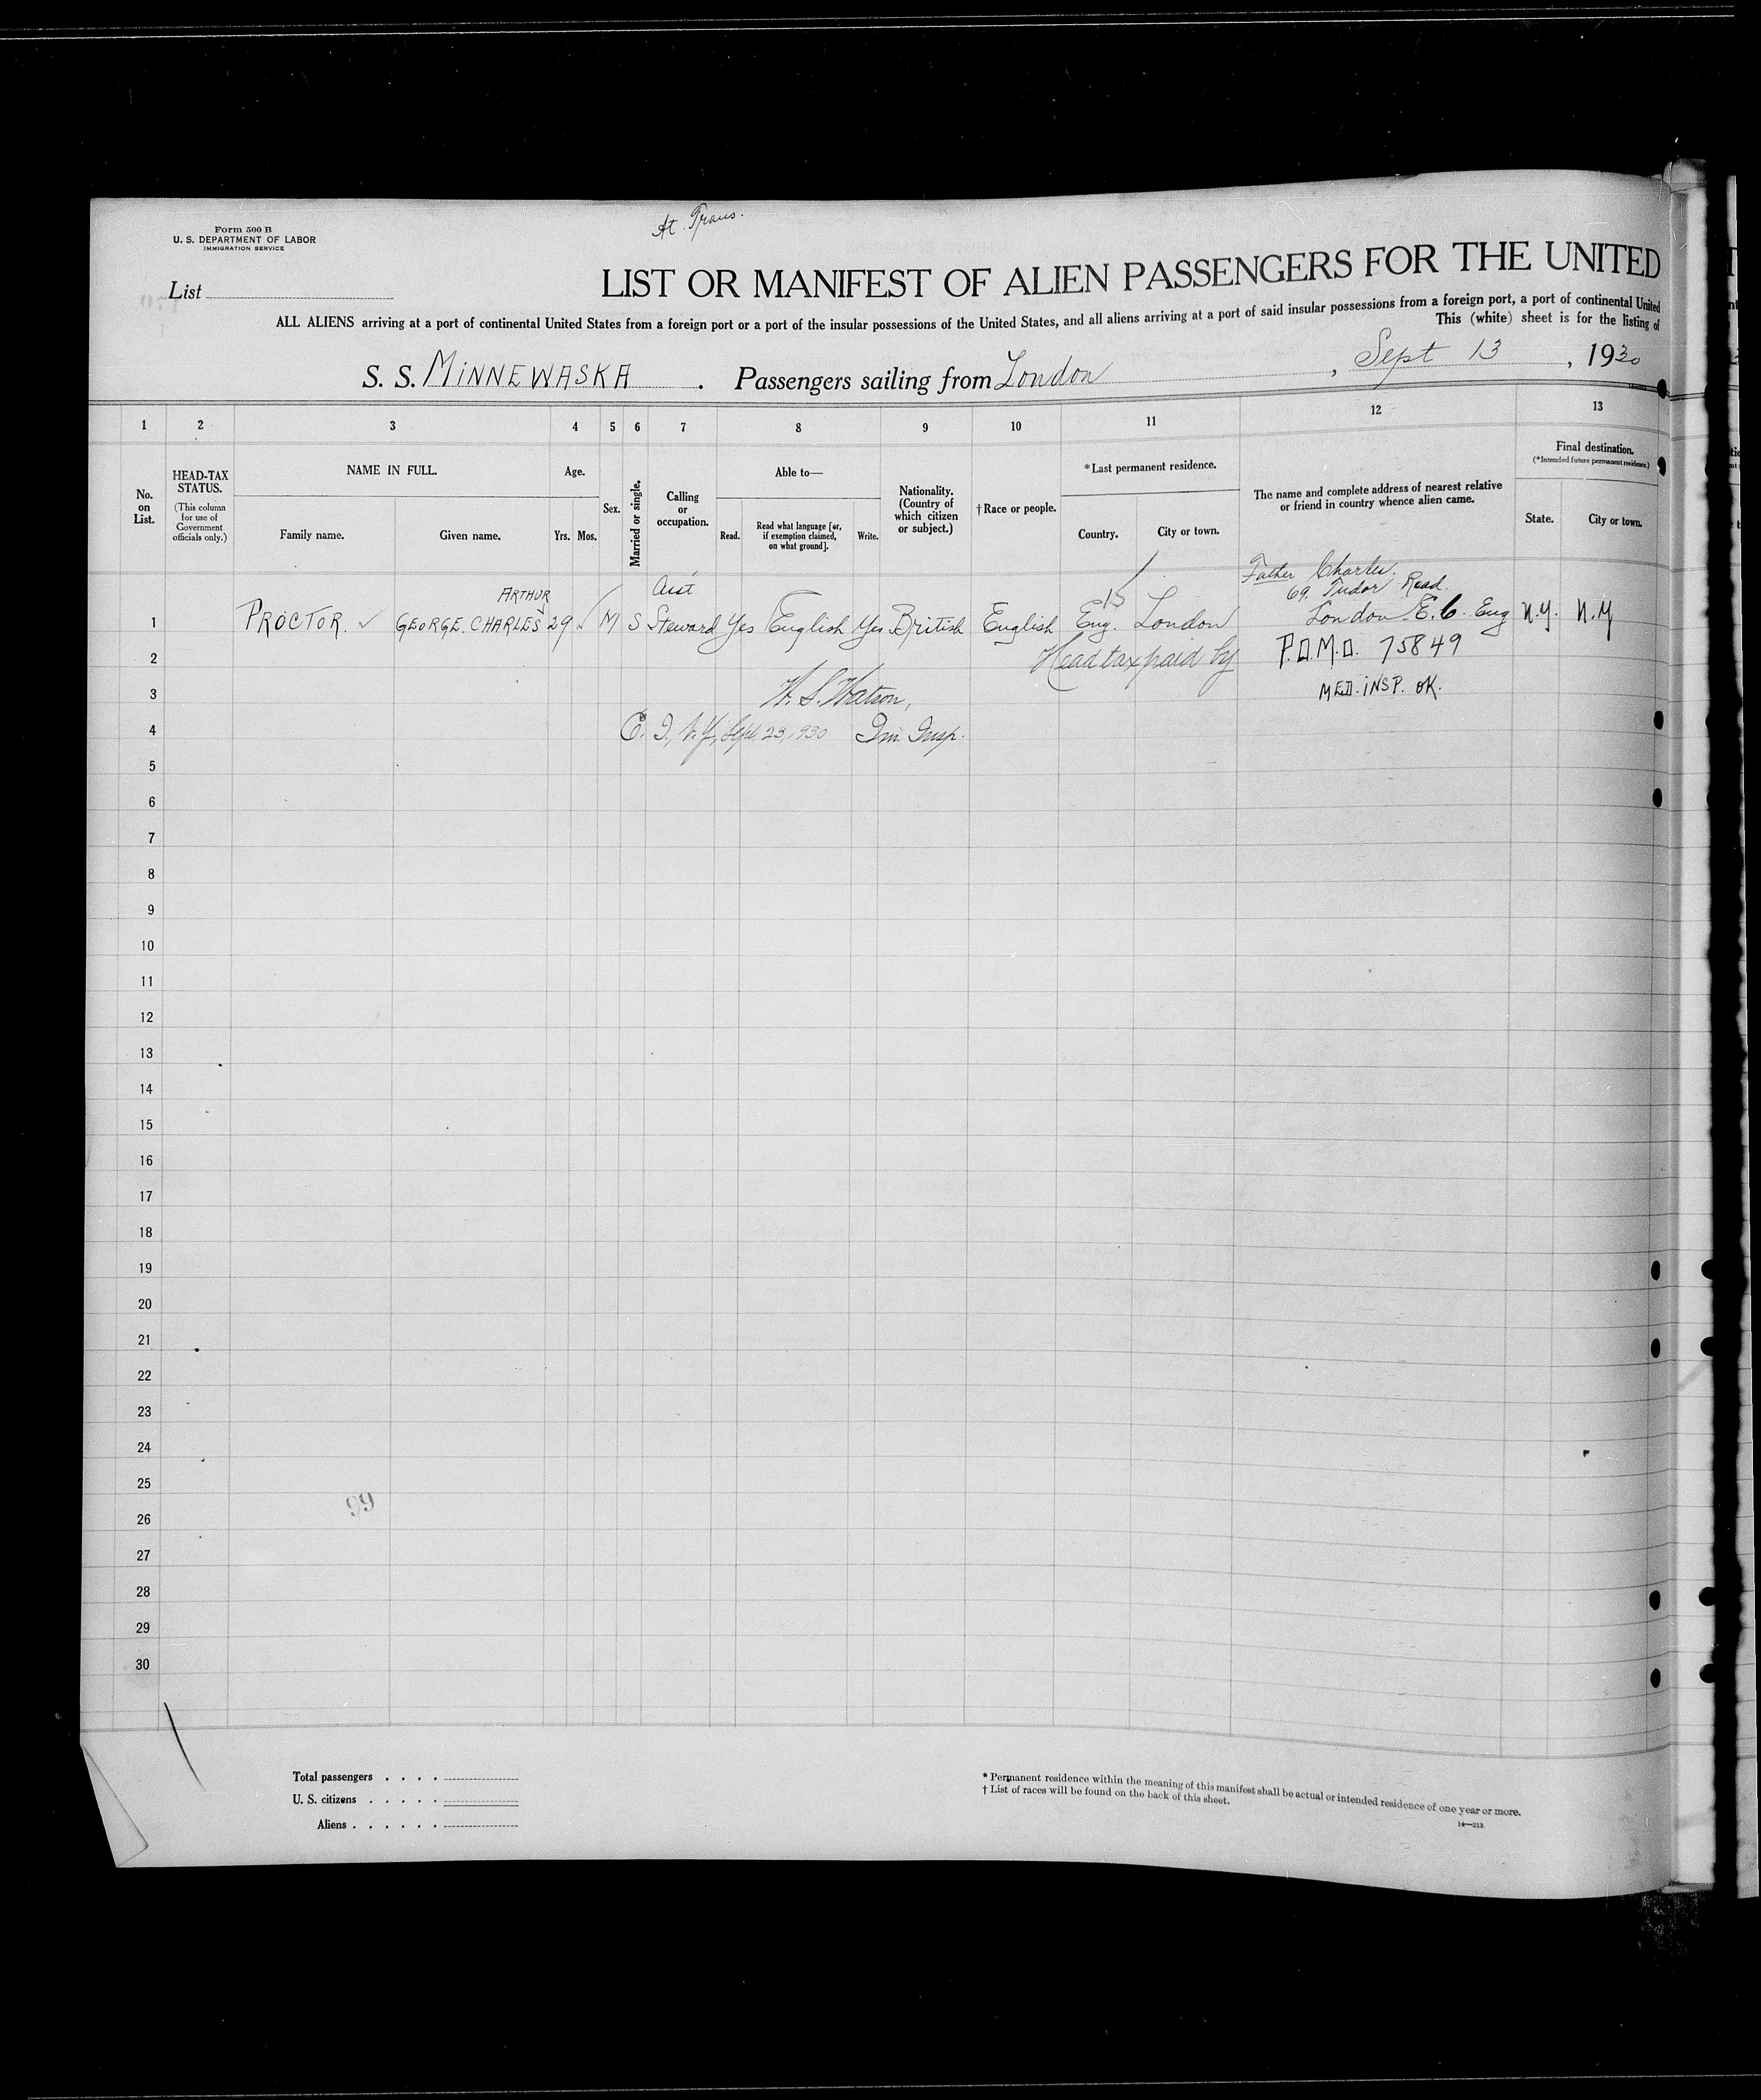 At. Trans.
Form 500 B
U. S. DEPARTMENT OF LABOR
IMMIGRATION SERVICE
List
LIST OR MANIFEST OF ALIEN PASSENGERS FOR THE UNITED
ALL ALIENS arriving at a port of continental United States from a foreign port or a port of the insular possessions of the United States, and all aliens arriving at a port of said insular possessions from a foreign port, a port of continental United
This (white) sheet is for the listing of
S. S. MINNEWASKA . Passengers sailing from London , Sept 13 , 1930
1 2 3 4 5 6 7 8 9 10 11 12 13
No. on List.
HEAD-TAX STATUS.
(This column for use of Government officials only.)
NAME IN FULL.
Family name. Given name.
Age.
Yrs. Mos.
Sex.
Married or single.
Calling or occupation.
Able to—
Read. Read what language [or, if exemption claimed, on what ground]. Write.
Nationality. (Country of which citizen or subject.)
† Race or people.
* Last permanent residence.
Country. City or town.
The name and complete address of nearest relative or friend in country whence alien came.
Final destination.
(*Intended future permanent residence.)
State. City or town.
ARTHUR
Asst
15
Father Charles.
69. Tudor Road
1 PROCTOR. ✓ GEORGE. CHARLES 29 ✓ M S Steward Yes English Yes British English Eng. London London E.6. Eng N.Y. N.Y
2 Head tax paid by P.O.M.O. 75849
3 W. S. Watson, MED. INSP. OK.
4 E. I., N.Y., Sept. 23, 1930 Im. Insp.
5
6
7
8
9
10
11
12
13
14
15
16
17
18
19
20
21
22
23
24
25
99
26
27
28
29
30
Total passengers . . . .
U. S. citizens . . . . .
Aliens . . . . . .
* Permanent residence within the meaning of this manifest shall be actual or intended residence of one year or more.
† List of races will be found on the back of this sheet.
14—213